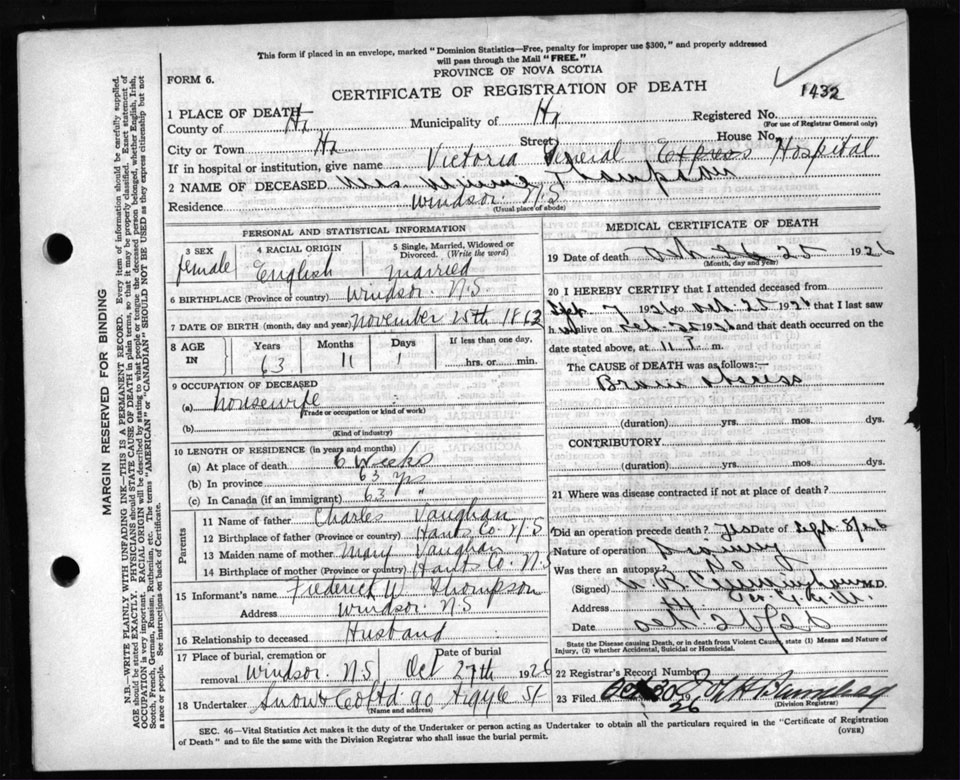 This form if placed in an envelope, marked "Dominion Statistics—Free, penalty for improper use $300," and properly addressed
will pass through the Mail "FREE."
PROVINCE OF NOVA SCOTIA
FORM 6.
CERTIFICATE OF REGISTRATION OF DEATH
1432
1 PLACE OF DEATH
County of Hx Municipality of Hx Registered No.
(For use of Registrar General only)
City or Town Hx Street House No.
If in hospital or institution, give name Victoria General Express Hospital
2 NAME OF DECEASED Mrs. Minnie Thompson
Residence Windsor N.S
(Usual place of abode)
PERSONAL AND STATISTICAL INFORMATION
3 SEX female
4 RACIAL ORIGIN English
5 Single, Married, Widowed or Divorced. (Write the word) Married
6 BIRTHPLACE (Province or country) Windsor. N.S
7 DATE OF BIRTH (month, day and year) November 25th 1862
8 AGE IN
Years Months Days If less than one day,
63 11 1 hrs. or min.
9 OCCUPATION OF DECEASED
(a) housewife
(Trade or occupation or kind of work)
(b)
(Kind of industry)
10 LENGTH OF RESIDENCE (in years and months)
(a) At place of death 6 Weeks
(b) In province 63 yrs
(c) In Canada (if an immigrant) 63 "
Parents
11 Name of father Charles Vaughan
12 Birthplace of father (Province or country) Hants Co. N.S
13 Maiden name of mother Mary Vaughan
14 Birthplace of mother (Province or country) Hants Co. N.S
15 Informant's name Frederick W Thompson
Address Windsor N.S
16 Relationship to deceased Husband
17 Place of burial, cremation or removal Windsor. N.S Date of burial Oct 27th 1926
18 Undertaker Snow & Co Ltd 90 Argyle St
(Name and address)
MEDICAL CERTIFICATE OF DEATH
19 Date of death 25 1926
(Month, day and year)
20 I HEREBY CERTIFY that I attended deceased from
Sept. 7 1926 to Oct. 25 1926 that I last saw
h er alive on Oct. 25 1926 and that death occurred on the
date stated above, at 11 P. m.
The CAUSE OF DEATH was as follows:—
Brain Abscess
(duration) yrs. mos. dys.
CONTRIBUTORY
(duration) yrs. mos. dys.
21 Where was disease contracted if not at place of death?
Did an operation precede death? Yes Date of Sept. 8/26
Nature of operation
Was there an autopsy? No
(Signed) Cunningham M.D.
Address
Date
State the Disease causing Death, or in death from Violent Causes, state (1) Means and Nature of
Injury, (2) whether Accidental, Suicidal or Homicidal.
22 Registrar's Record Number
23 Filed Oct 30 1926
(Division Registrar)
SEC. 46—Vital Statistics Act makes it the duty of the Undertaker or person acting as Undertaker to obtain all the particulars required in the "Certificate of Registration
of Death" and to file the same with the Division Registrar who shall issue the burial permit.
(OVER)
MARGIN RESERVED FOR BINDING
N.B.—WRITE PLAINLY WITH UNFADING INK—THIS IS A PERMANENT RECORD. Every item of information should be carefully supplied.
AGE should be stated EXACTLY. PHYSICIANS should STATE CAUSE OF DEATH in plain terms, so that it may be properly classified. Exact statement of
OCCUPATION is very important. RACIAL ORIGIN will be described by stating to what people or tongue the deceased person belonged, whether English, Irish,
Scotch, French, German, Russian, Ruthenian, etc. The terms "AMERICAN" or "CANADIAN" SHOULD NOT BE USED as they express citizenship but not
a race or people. See instructions on back of Certificate.